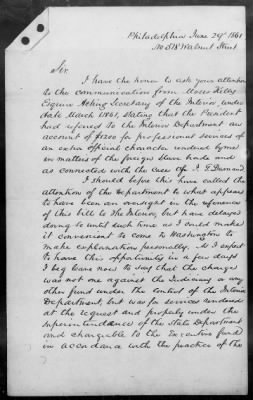 Philadelphia June 29th 1861
No 518 Walnut Street
Sir
I have the honor to ask your attention
to the communication from Moses Kelly
Esquire Acting Secretary of the Interior, under
date March 1861, stating that the President
had referred to the Interior Department an
account of $1200 for professional services of
an extra official character rendered by me
in matters of the foreign slave trade and
as connected with the case of
I should before this have called the
attention of the Department to what appears
to have been an oversight in the reference
of this bill to the Interior, but have delayed
doing so until such time as I could make
it convenient to come to Washington to
make explanations personally. As I expect
to have this opportunity in a few days
I beg leave now to say that the charge
was not one against the Judiciary or any
other fund under the control of the Interior
Department, but was for services rendered
at the request and properly under the
superintendence of the State Department
and chargeable to the Executive fund
in accordance with the practice of the